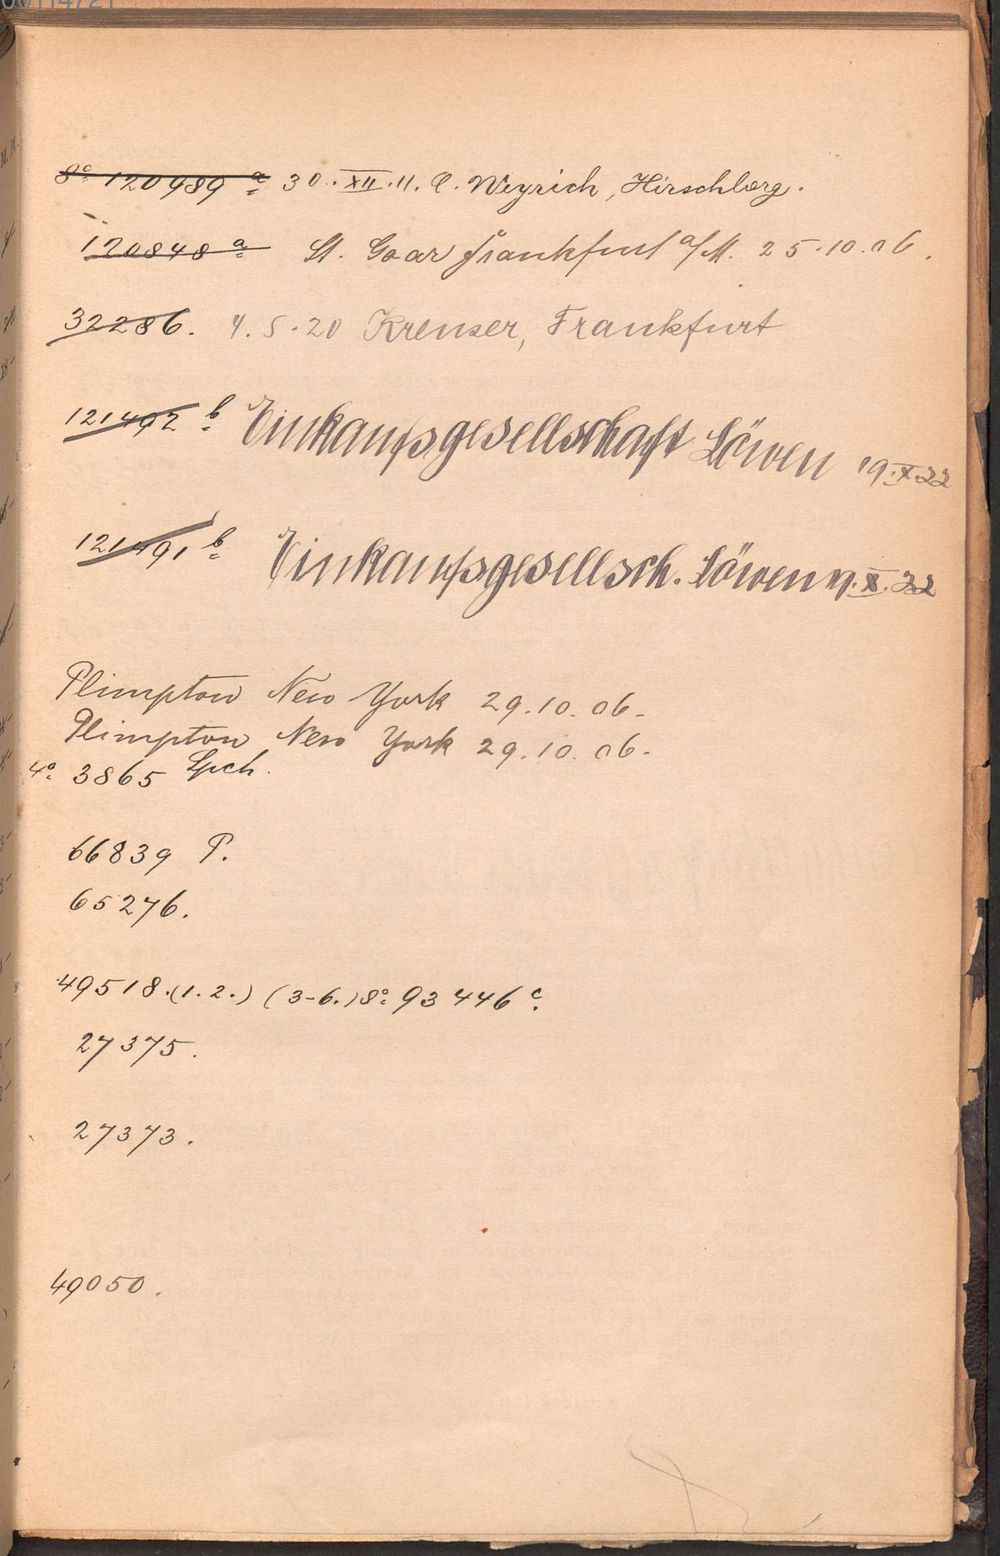 8º 120989 a 30.XII.11. C. Weyrich, Hirschberg.
120848 a St. Goar Frankfurt a/M. 25.10.06.
32286. 4.5.20 Kreuser, Frankfurt
121492 b Einkaufsgesellschaft Löwen 19.X.22
121491 b Einkaufsgesellsch. Löwen 19.X.22
Plimpton New York 29.10.06.
Plimpton New York 29.10.06.
4º 3865 Lpch.
66839 P.
65276.
49518.(1.2.) (3-6.) 8º 93446 c.
27375.
27373.
49050.